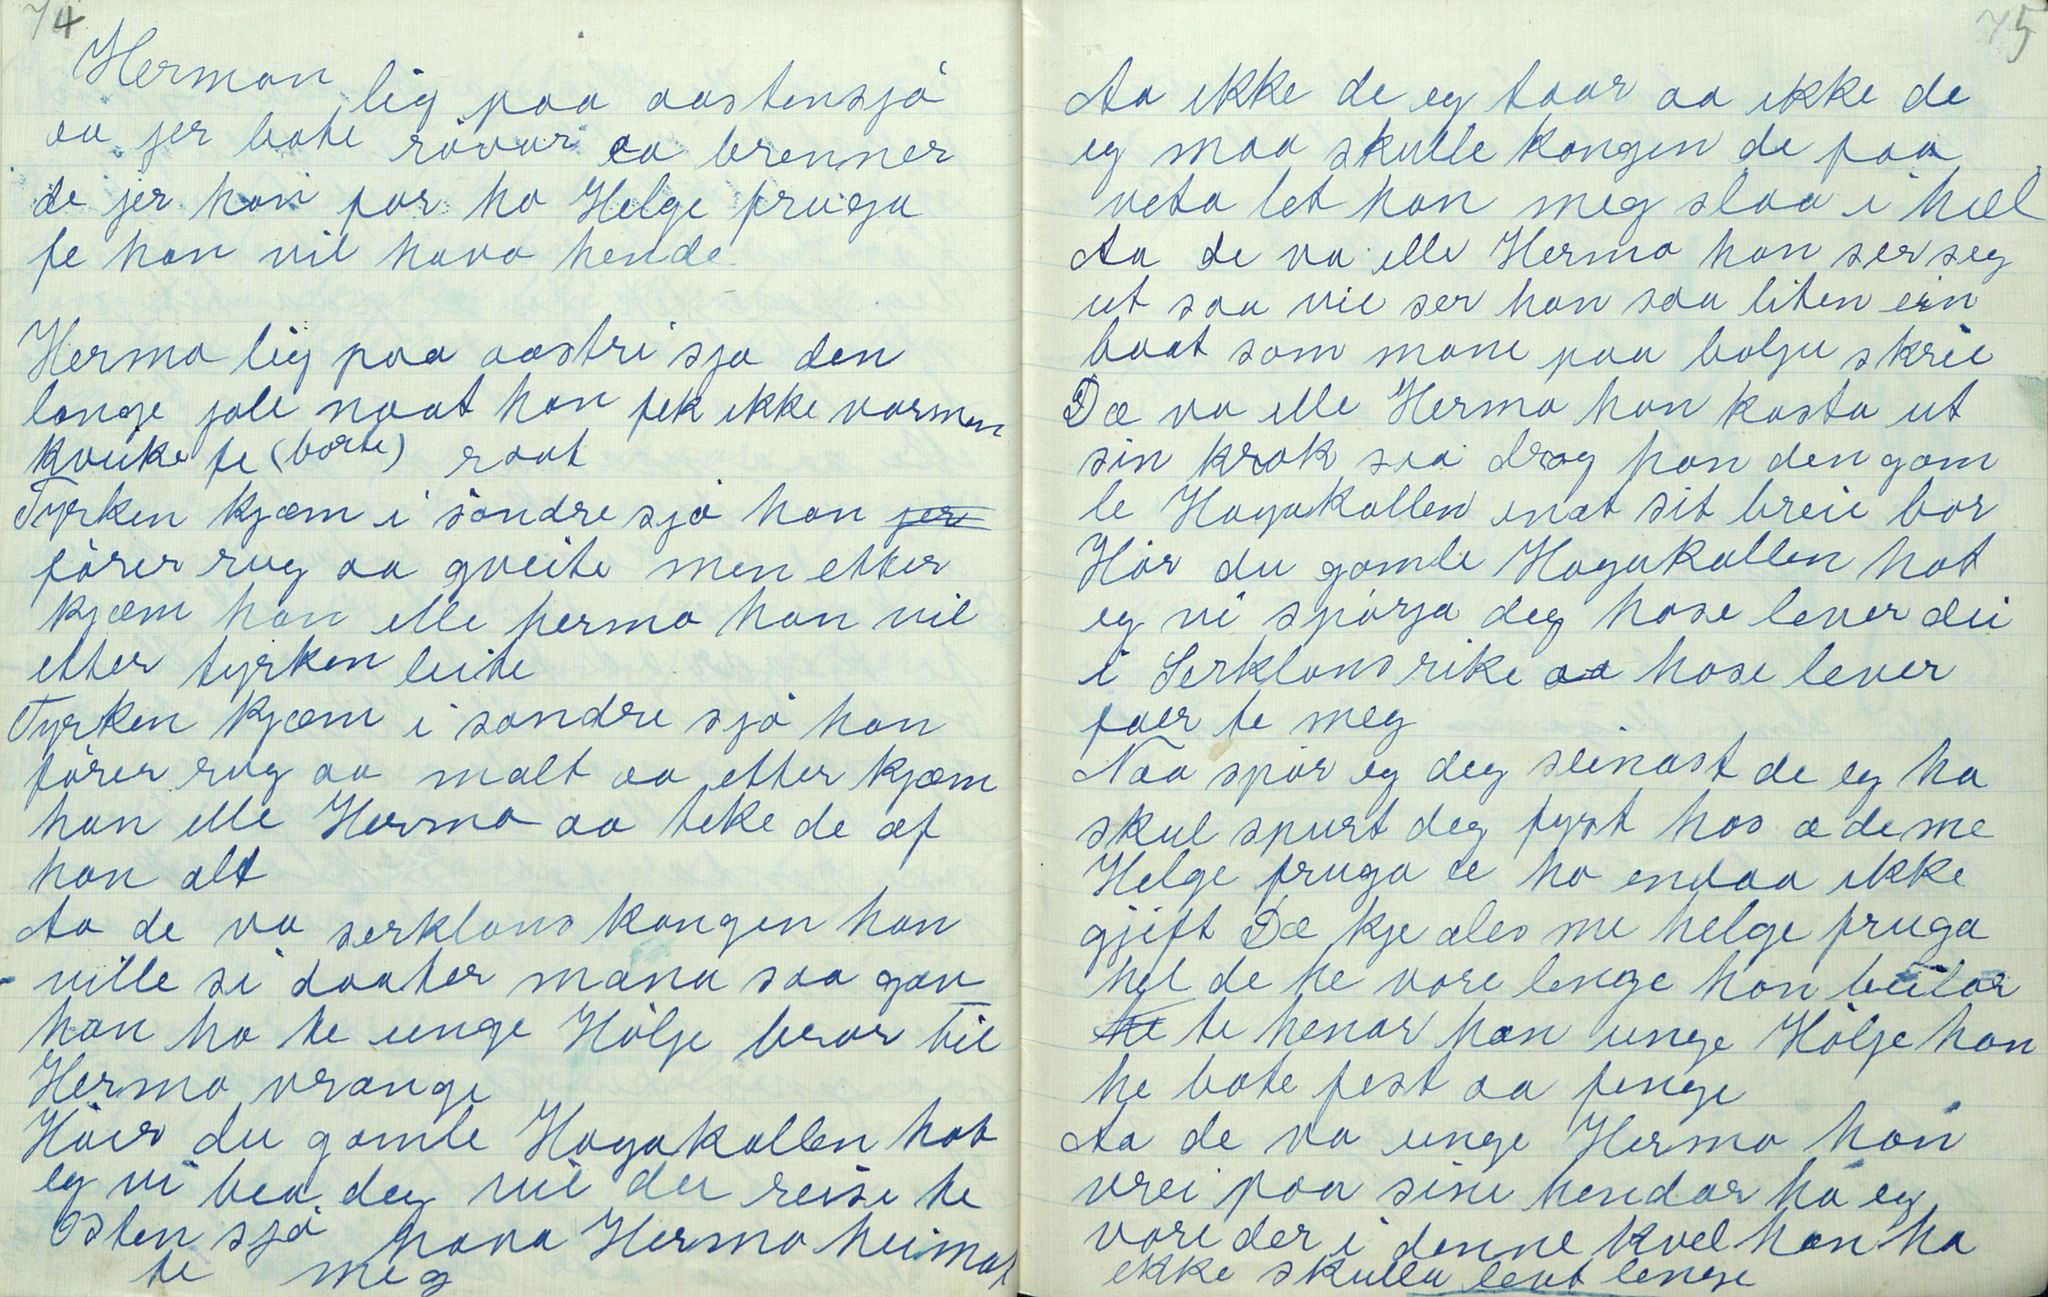 74
Herman lig paa aastensjö
aa jer bate råvar aa brenner
de jer han far ho Helge fruga
fe han vil hava hende
Herma lig paa aastri sjø den
lange jole naat han fek ikke varmen
kveike te (borte) raat
Tyrken kjæm i söndre sjö han jer
förer rug aa gveite men etter
kjæm han elle herma han vil
etter tyrken leite
Tyrken kjæm i søndre sjö han
förer rug aa malt aa etter kjæm
han elle Herma aa teke de af
han alt
Aa de va serklans kangen han
ville si daater mana saa gav
han ho te unge Hölje bror til
Herma vrange
Höir du gamle Hagakallen hat
eg vi bea deg vil du reise te
Østen sjö hava Herma heimat
te meg
75
Aa ikke de eg taar aa ikke de
eg maa skulle kongen de faa
veta let han meg slaa i hæl
Aa de va elle Herma han ser seg
ut saa vie ser han saa liten ein
baat som mone paa bolju skrie
Dæ va elle Herma han kasta ut
sin krok saa drog han den gam
le Hagakallen inat sit breie bor
Hör du gamle Hagakallen hat
eg vi spörja deg hose lever dei
i Serklans rike aa hose lever
faer te meg
Naa spör eg deg seinast de eg ha
skul spurt deg fyst hos æ de me
Helge fruga æ ho endaa ikke
gjift Dæ kje ales me helge fruga
hel de he vore lenge han beilar
he te henar han unge Hölje han
he bote fest aa fenge
Aa de va unge Herma han
vrei paa sine hendar ha eg
vore der i denne kvel han ha
ikke skulla levt lenge